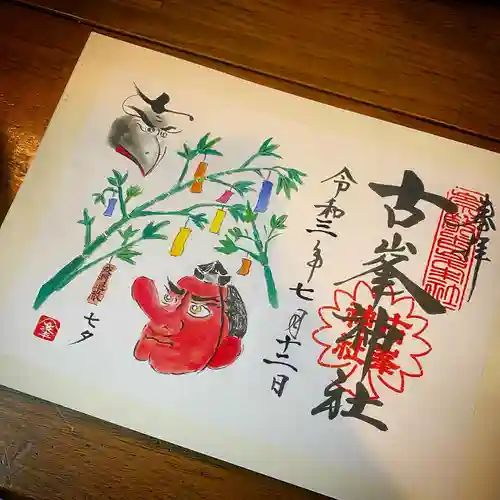 奉拝
古峯神社
古峯神社
令和三年七月十二日
七夕